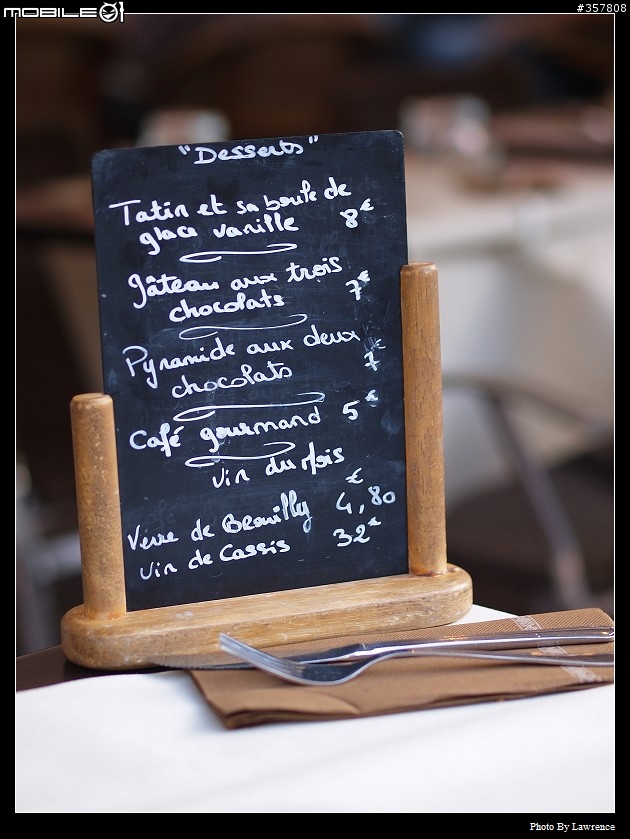 MOBILE01
#357808
"Desserts"
Tatin et sa boule de
glace vanille 8€
gâteau aux trois
chocolats 7€
Pyramide aux deux
chocolats 7€
Café gourmand 5€
Vin du Mois
€
Verre de Brouilly 4,80
Vin de Cassis 32€
Photo By Lawrence